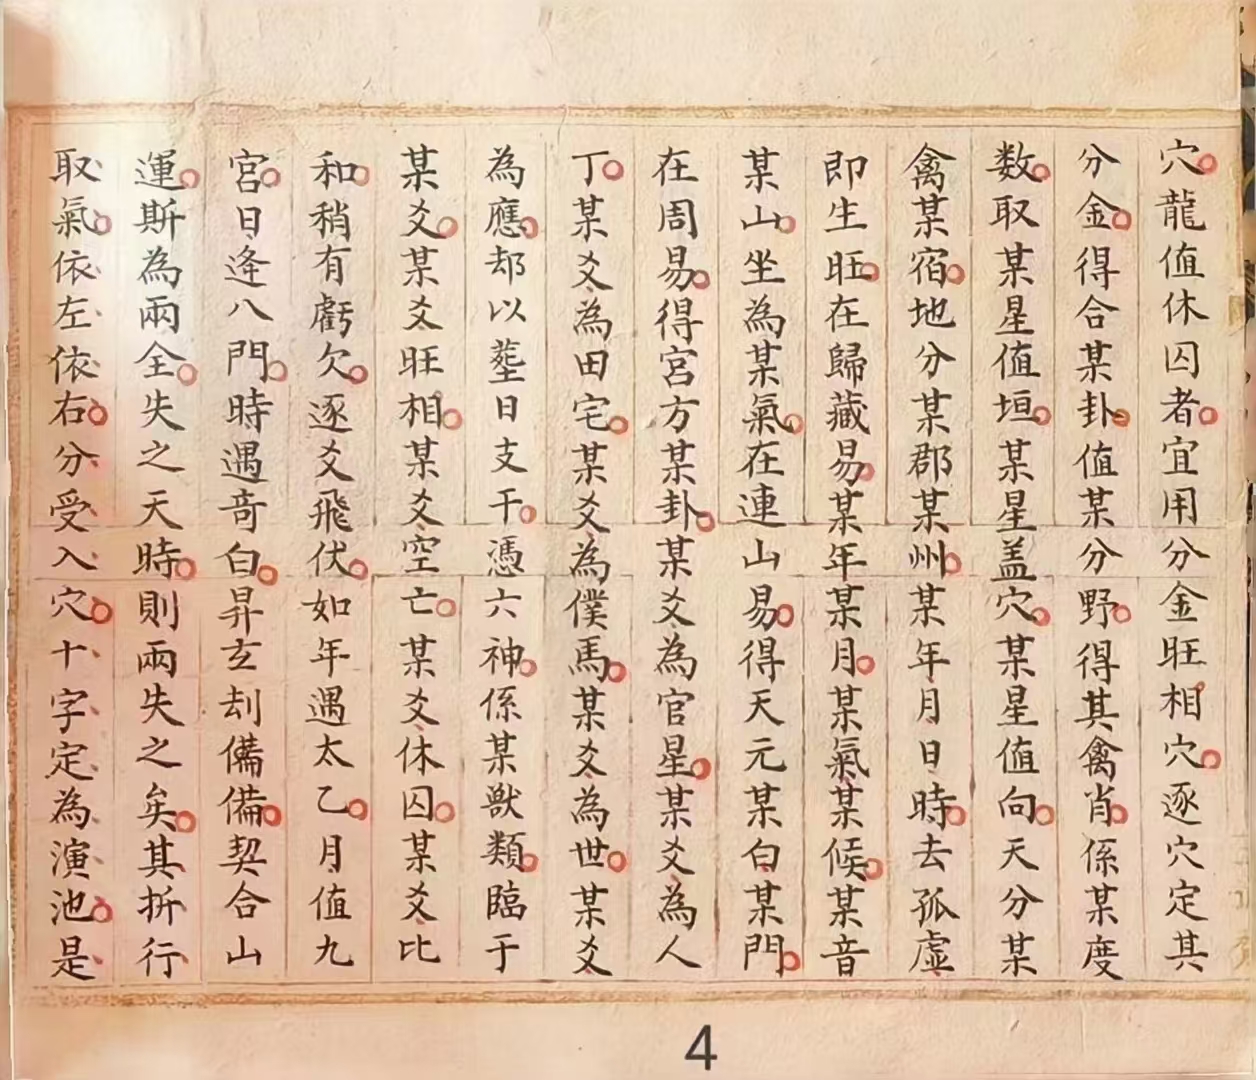 穴龍值休囚者宜用分金旺相穴逐穴定其
分金得合某卦值某分野得其禽肖係某度
数取某星值垣某星盖穴某星值向天分某
禽某宿地分某郡某州某年月日時去孤虛
即生旺在歸藏易某年某月某氣某候某音
某山坐為某氣在連山易得天元某白某門
在周易得宮方某卦某爻為官星某爻為人
丁某爻為田宅某爻為僕馬某爻為世某爻
為應却以塟日支干憑六神係某獸類臨于
某爻某爻旺相某爻空亡某爻休囚某爻比
和稍有虧欠逐爻飛伏如年遇太乙月值九
宮日逄八門時遇竒白昇玄刦備備契合山
運斯為兩全失之天時則兩失之矣其折行
取氣依左依右分受入穴十字定為演池是
4